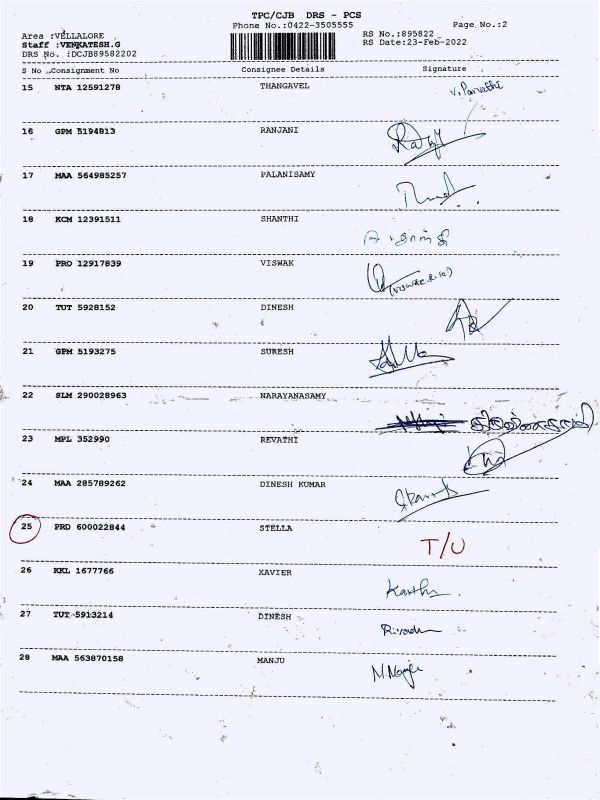 TPC/CJB DRS - PCS
Phone No.:0422-3505555
Page No.:2
Area :VELLALORE
RS No.:895822
Staff :VENKATESH.G
RS Date:23-Feb-2022
DRS No. :DCJB89582202
S No Consignment No Consignee Details Signature
15 NTA 12591278 THANGAVEL V. Parvathi
16 GPM 5194813 RANJANI
17 MAA 564985257 PALANISAMY
18 KCM 12391511 SHANTHI
19 PRO 12917839 VISWAK
20 TUT 5928152 DINESH
21 GPM 5193275 SURESH
22 SLM 290028963 NARAYANASAMY
23 MPL 352990 REVATHI
24 MAA 285789262 DINESH KUMAR
25 PRD 600022844 STELLA T/U
26 KKL 1677766 XAVIER
27 TUT 5913214 DINESH
28 MAA 563870158 MANJU